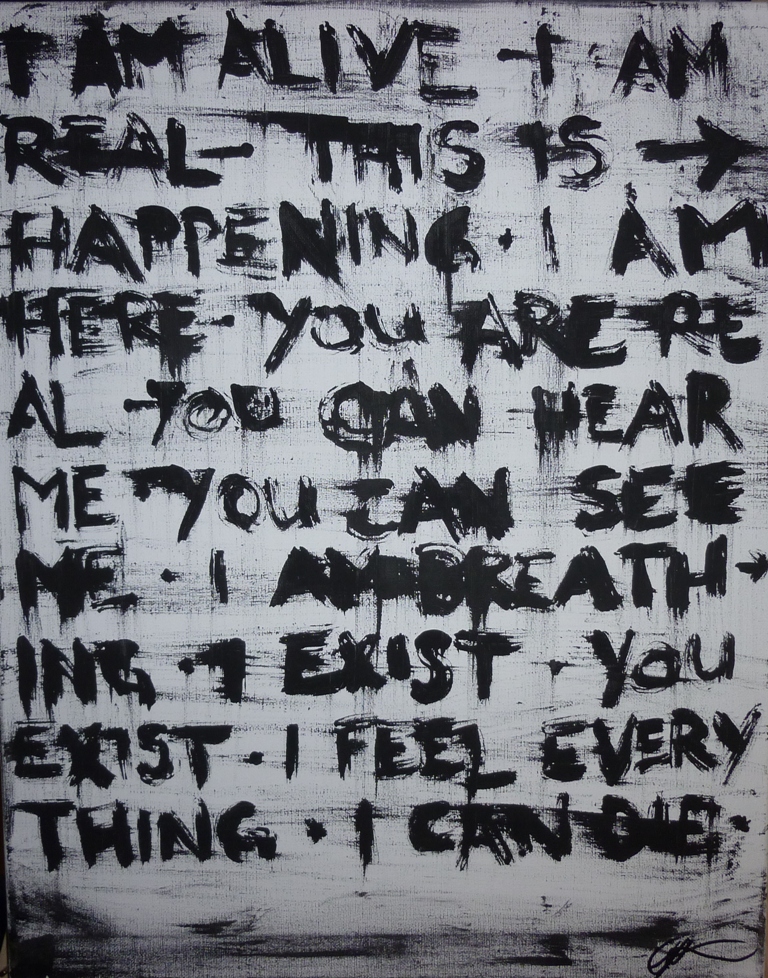 I AM ALIVE · I AM
REAL · THIS IS →
HAPPENING · I AM
HERE · YOU ARE RE
AL YOU CAN HEAR
ME YOU CAN SEE
ME · I AM BREATH →
ING · I EXIST · YOU
EXIST · I FEEL EVERY
THING · I CAN DIE ·